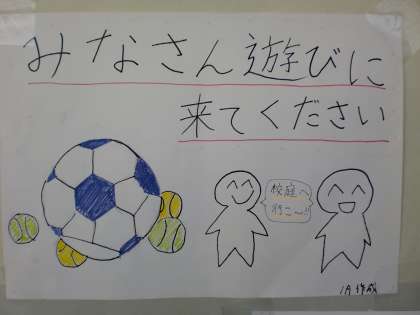 みなさん遊びに
来てください
校庭へ
行こ〜!!
1A作成